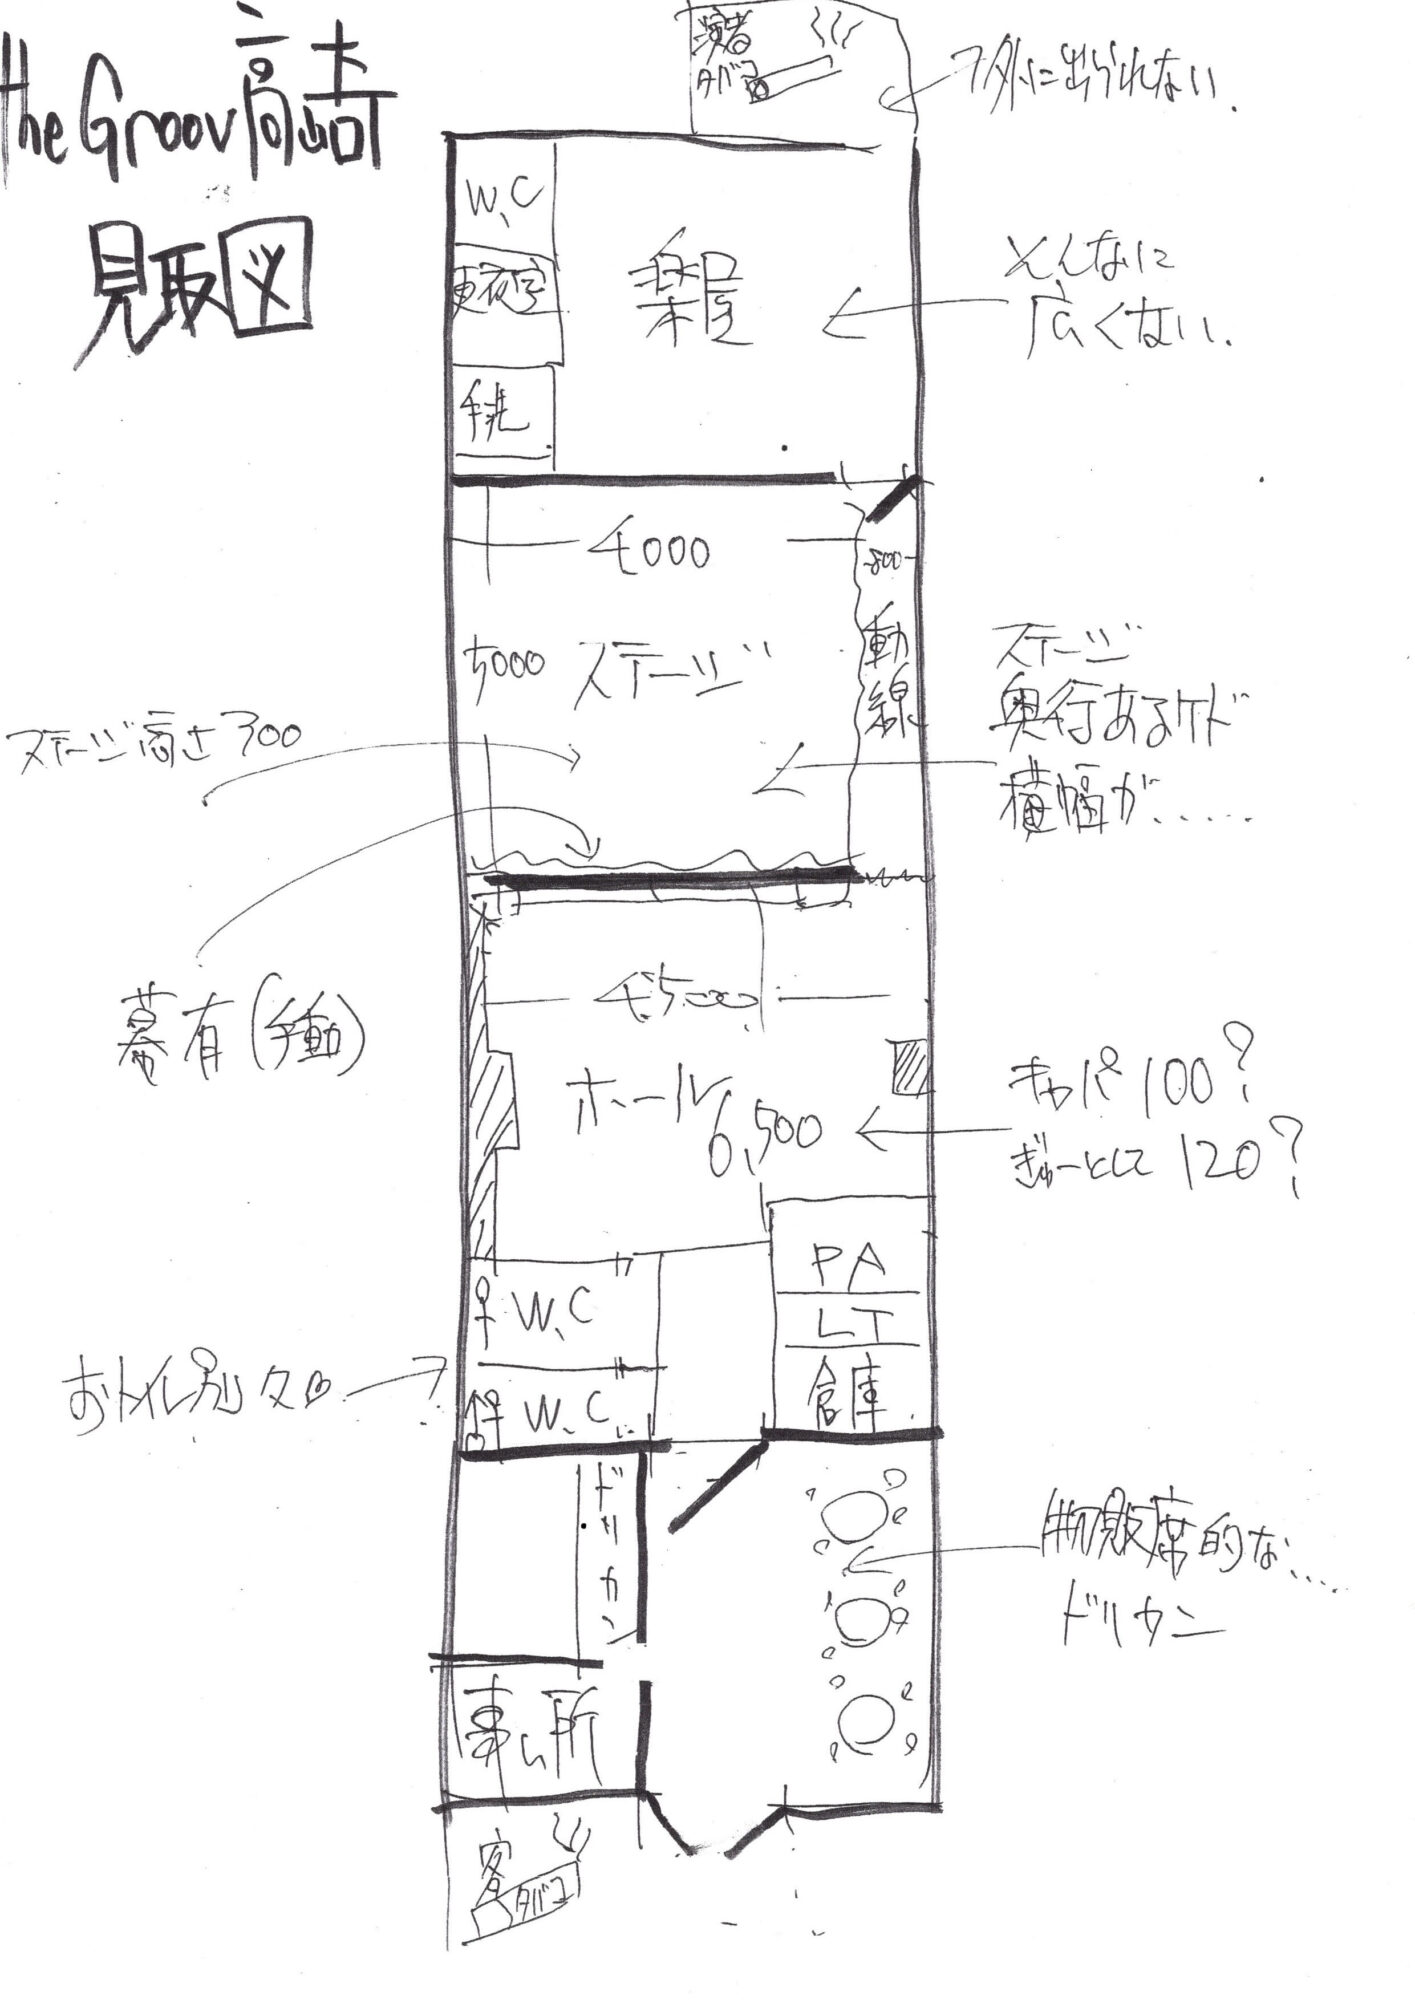 the Groov高崎
見取図
演者
タバコ
外に出られない.
W.C
更衣室
手洗
楽屋
そんなに
広くない.
4000
800
5000 ステージ
動線
ステージ高さ700
ステージ
奥行あるケド
横幅が......
幕有(手動)
4500
ホール
6,500
キャパ100?
ぎゅーとして120?
PA
LT
倉庫
W.C
W.C
おトイレ別々
ドリカン
物販席的な....
ドリカン
事ム所
客
タバコ